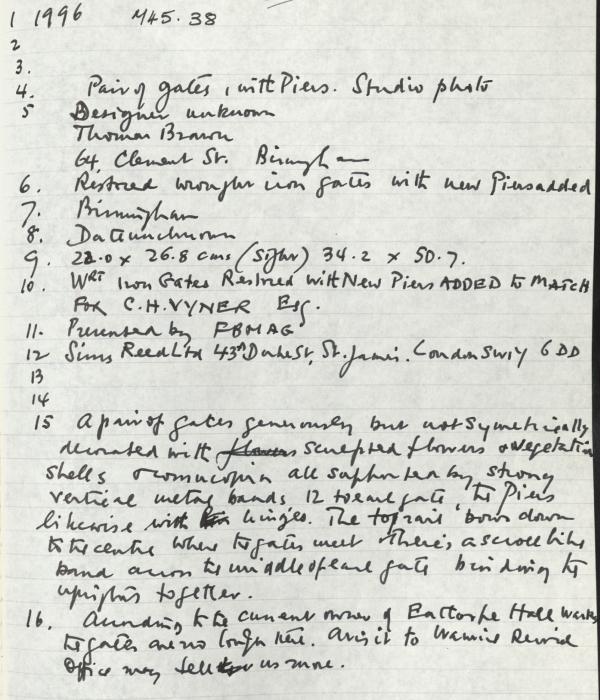 1 1996 M45.38
2
3.
4. Pair of gates, with Piers. Studio photo
5 Designer unknown
Thomas Brawn
64 Clement St. Birmingham
6. Restored wrought iron gates with new Piers added
7. Birmingham
8. Date unknown
9. 22.0 x 26.8 cms (Sight) 34.2 x 50.7.
10. WRT Iron Gates Restored with New Piers ADDED to MATCH
FOR C.H. VYNER Esq.
11. Presented by FBMAG
12 Sims Reed Ltd 43A Duke St, St. James. London SW1Y 6DD
13
14
15 A pair of gates generously but not symetrically
decorated with flowers sculpted flowers & vegetation
shells & cornucopia all supported by strong
vertical metal bands 12 to each gate, the Piers
likewise with hinges. The top rail 'bows down
to the centre where the gates meet. There is a scroll like
band across the middle of each gate binding the
uprights together.
16. According to the current owner of Eathorpe Hall Warks
the gates are no longer there. A visit to Warwick Record
Office may tell us more.